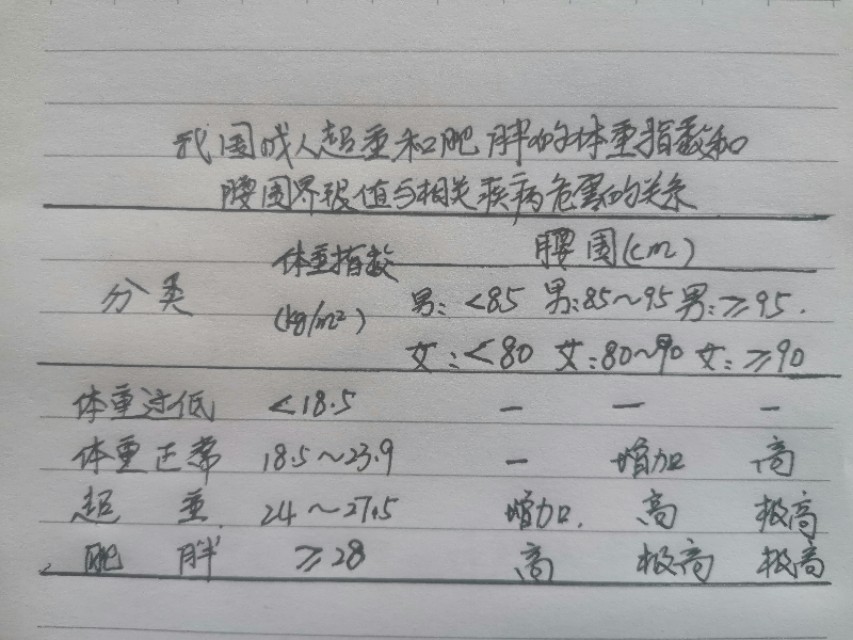 我国成人超重和肥胖的体重指数和
腰围界限值与相关疾病危害的关系
分类 体重指数 (kg/m²) 腰围(cm)
男:<85 男:85~95 男:≥95.
女:<80 女:80~90 女:≥90
体重过低 <18.5 — — —
体重正常 18.5~23.9 — 增加 高
超重 24~27.5 增加. 高 极高
肥胖 ≥28 高 极高 极高